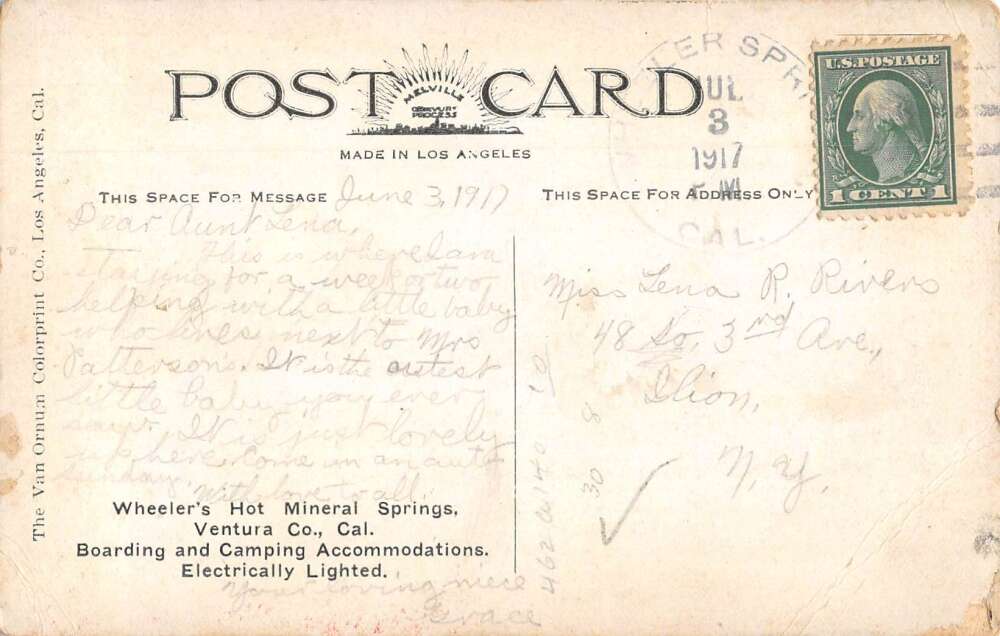 POST CARD
MELVILLE
CENTURY
PROCESS
MADE IN LOS ANGELES
WHEELER SPRI
JUL
3
1917
CAL.
U.S. POSTAGE
1 CENT 1
THIS SPACE FOR MESSAGE
THIS SPACE FOR ADDRESS ONLY
June 3, 1917
Dear Aunt Lena,
This is where I am
staying for a week or two,
helping with a little baby
who lives next to Mrs
Pattersons. It is the cutest
little baby you ever
saw. It is just lovely
up here. Come in an auto
Sunday.
With love to all,
Your loving niece
Grace
Miss Lena R. Rivers
48 So. 3rd Ave.,
Ilion,
N. Y.
Wheeler's Hot Mineral Springs,
Ventura Co., Cal.
Boarding and Camping Accommodations.
Electrically Lighted.
10
30 8
The Van Ornum Colorprint Co., Los Angeles, Cal.